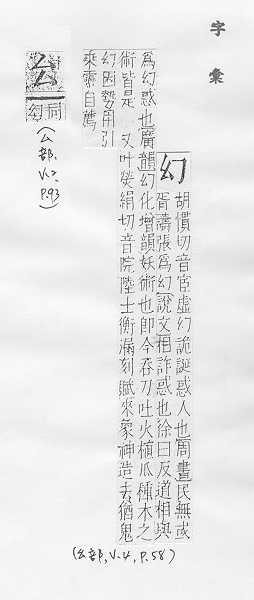 字彙
幻
胡慣切音宦虛幻詭誕惑人也周書民無或
胥譸張爲幻說文相詐惑也徐曰反道相與
爲幻惑也廣韻幻化增韻妖術也卽今吞刀吐火植瓜種木之
術皆是 又叶熒絹切音院陸士衡漏刻賦來象神造去猶鬼
幻因勢用引
乘靈自薦
(幺部, V.4, P.58)
同幻
(厶部, V.2, P.93)